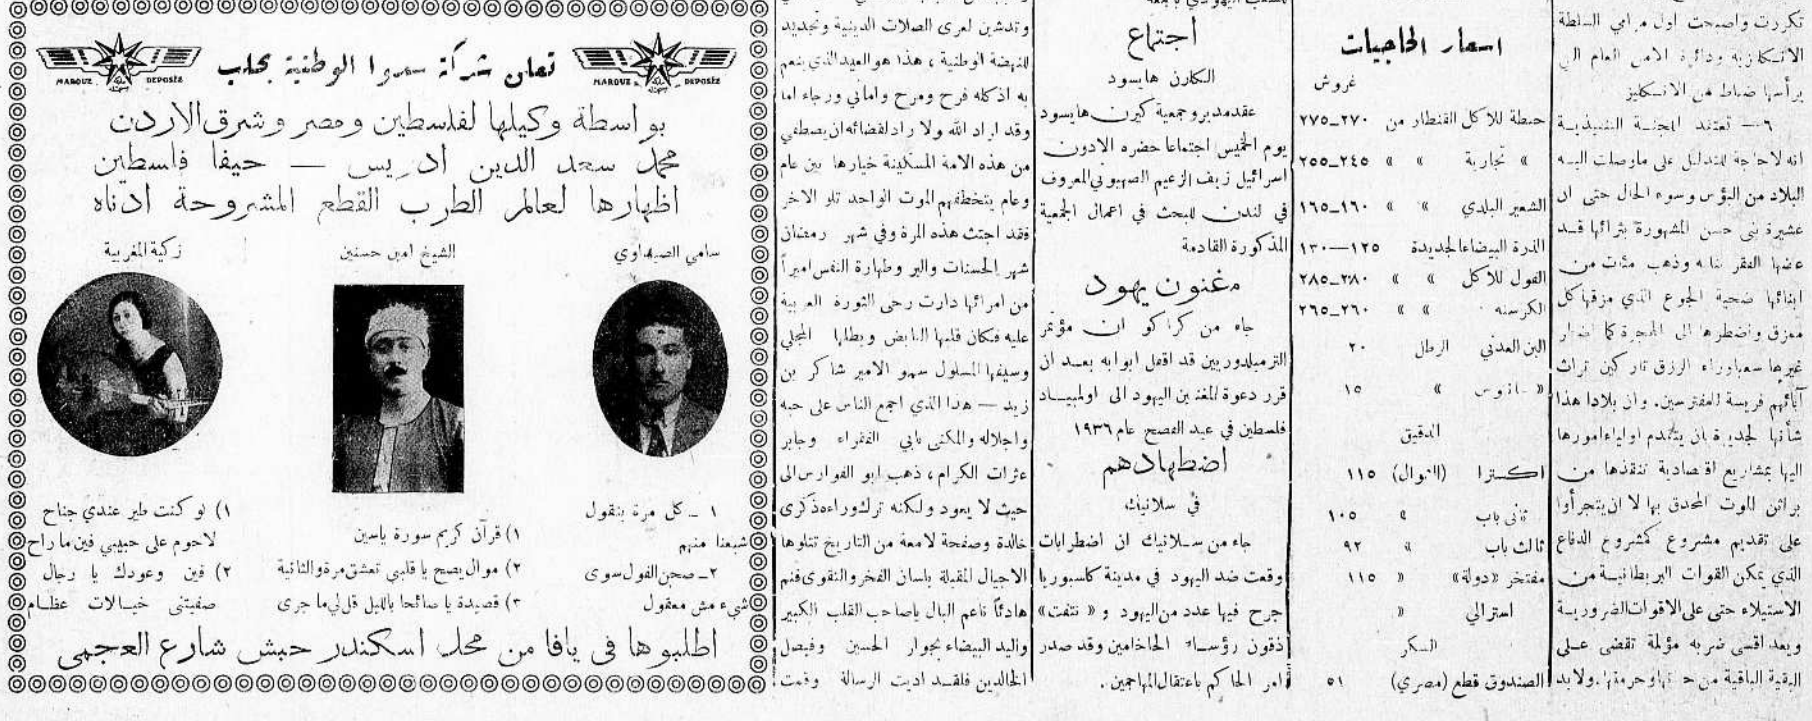 تكررت واصبحت اول مرامي السلطة
الانكليزية ودائرة الامن العام التي
يرأسها ضباط من الانكليز
٦ — تعتقد اللجنة التنفيذية
انه لا حاجة للتدليل على ما وصلت اليه
البلاد من البؤس وسوء الحال حتى ان
عشيرة بني حسن المشهورة بثرائها قد
عضها الفقر بنابه وذهب مئات من
ابنائها ضحية الجوع الذي مزقها كل
ممزق واضطرها الى الهجرة كما اضطر
غيرها سعيا وراء الرزق تاركين تراث
آبائهم فريسة للمفترسين. وان بلادا هذا
شأنها لجديرة بان يتقدم اولياء امورها
اليها بمشاريع اقتصادية تنقذها من
براثن الموت المحدق بها لا ان يتجرأوا
على تقديم مشروع كمشروع الدفاع
الذي يمكن القوات البريطانية من
الاستيلاء حتى على الاقوات الضرورية
ويعد اقسى ضربه مؤلمة تقضى على
البقية الباقية من حياتها وحرمتها. ولا بد
اسعار الحاجيات
غروش
حنطة للأكل القنطار من ٢٧٠_٢٧٥
» تجارية » » ٢٤٥_٢٥٥
الشعير البلدي » » ١٦٠_١٦٥
الذرة البيضاء الجديدة ١٢٥—١٣٠
الفول للأكل » » ٢٨٠_٢٨٥
الكرسنه » » ٢٦٠_٢٦٥
البن العدني الرطل ٢٠
» سانتوس » ١٥
الدقيق
اكسترا (النوال) ١١٥
ثاني باب » ١٠٥
ثالث باب » ٩٢
مفتخر «دولة» » ١١٥
استرالي »
السكر
الصندوق قطع (مصري) ٥١
اجتماع
الكارن هايسود
عقد مديرو جمعية كيرن هايسود
يوم الخميس اجتماعا حضره الادون
اسرائيل زيف الزعيم الصهيوني المعروف
في لندن للبحث في اعمال الجمعية
المذكورة القادمة
مغنون يهود
جاء من كراكو ان مؤتمر
الترمبلدوريين قد اقفل ابوابه بعد ان
قرر دعوة المغنين اليهود الى اولمبياد
فلسطين في عيد الفصح عام ١٩٣٦
اضطهادهم
في سلانيك
جاء من سلانيك ان اضطرابات
وقعت ضد اليهود في مدينة كاسبوريا
جرح فيها عدد من اليهود و «نتفت»
ذقون رؤساء الحاخامين وقد صدر
امر الحاكم باعتقال المهاجمين.
وتدشين لعرى الصلات الدينية وتجديد
للنهضة الوطنية، هذا هو العيد الذي ينعم
به اذ كله فرح ومرح واماني ورجاء اما
وقد اراد الله ولا راد لقضائه ان يصطفي
من هذه الامة المسكينة خيارها بين عام
وعام يتخطفهم الموت الواحد تلو الاخر
فقد اجتث هذه المرة وفي شهر رمضان
شهر الحسنات والبر وطهارة النفس اميراً
من امرائها دارت رحى الثورة العربية
عليه فكان قلبها النابض وبطلها المجلي
وسيفها المسلول سمو الامير شاكر بن
زيد — هذا الذي اجمع الناس على حبه
واجلاله والمكنى بابي الفقراء وجابر
عثرات الكرام، ذهب ابو الفوارس الى
حيث لا يعود ولكنه ترك وراءه ذكرى
خالدة وصفحة لامعة من التاريخ تتلوها
الاجيال المقبلة بلسان الفخر والتقوى فنم
هادئاً ناعم البال ياصاحب القلب الكبير
واليد البيضاء بجوار الحسين وفيصل
الخالدين فلقد اديت الرسالة وقمت
MARQUE DEPOSÉE
تعلن شركة سودوا الوطنية بحلب
MARQUE DEPOSÉE
بواسطة وكيلها لفلسطين ومصر وشرق الاردن
محمد سعد الدين ادريس — حيفا فلسطين
اظهارها لعالم الطرب القطع المشروحة ادناه
سامي الصيداوي
الشيخ امين حسنين
زكية المغربية
١ _ كل مرة بنقول
شبعنا منهم
٢_ صحن الفول سوى
شيء مش معقول
١) قرآن كريم سورة ياسين
٢) موال يصح يا قلبي تعشق مرة والثانية
٣) قصيدة يا صائحا بالليل قل لي ما جرى
١) لو كنت طير عندي جناح
لاحوم على حبيبي فين ما راح
٢) فين وعودك يا رجال
صفيتني خيالات عظام
اطلبوها في يافا من محل اسكندر حبش شارع العجمي